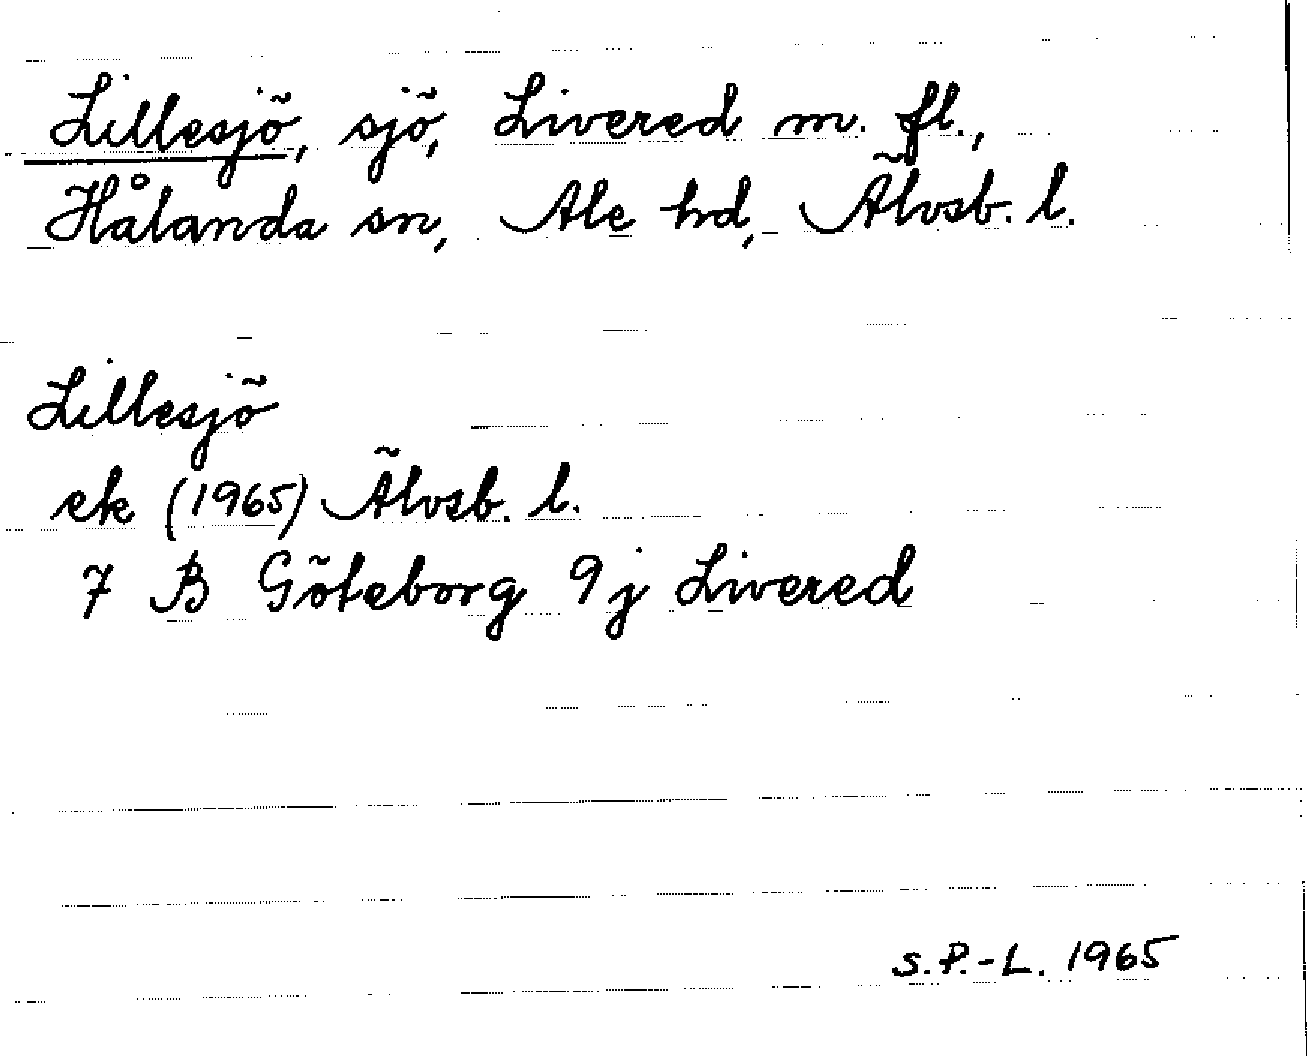 Lillesjö, sjö, Livered m. fl.,
Hålanda sn, Ale hd, Älvsb. l.
Lillesjö
ek (1965) Älvsb. l.
7 B Göteborg 9j Livered
S.P.-L. 1965